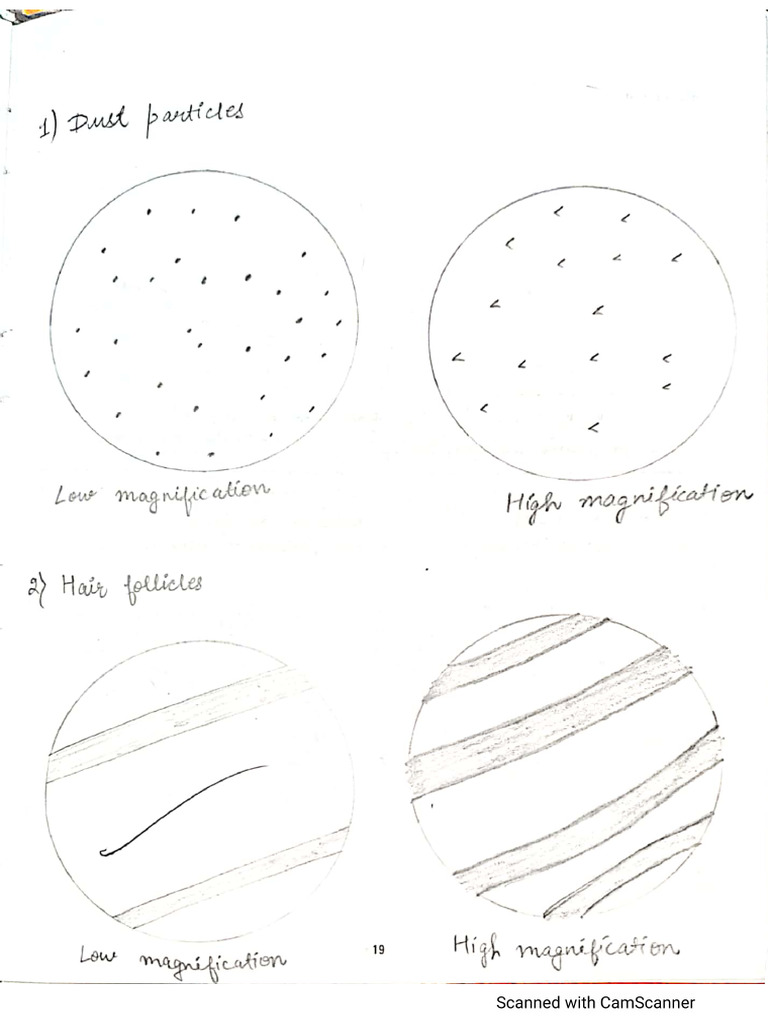 1) Dust particles
Low magnification
High magnification
2) Hair follicles
Low magnification
19
High magnification
Scanned with CamScanner